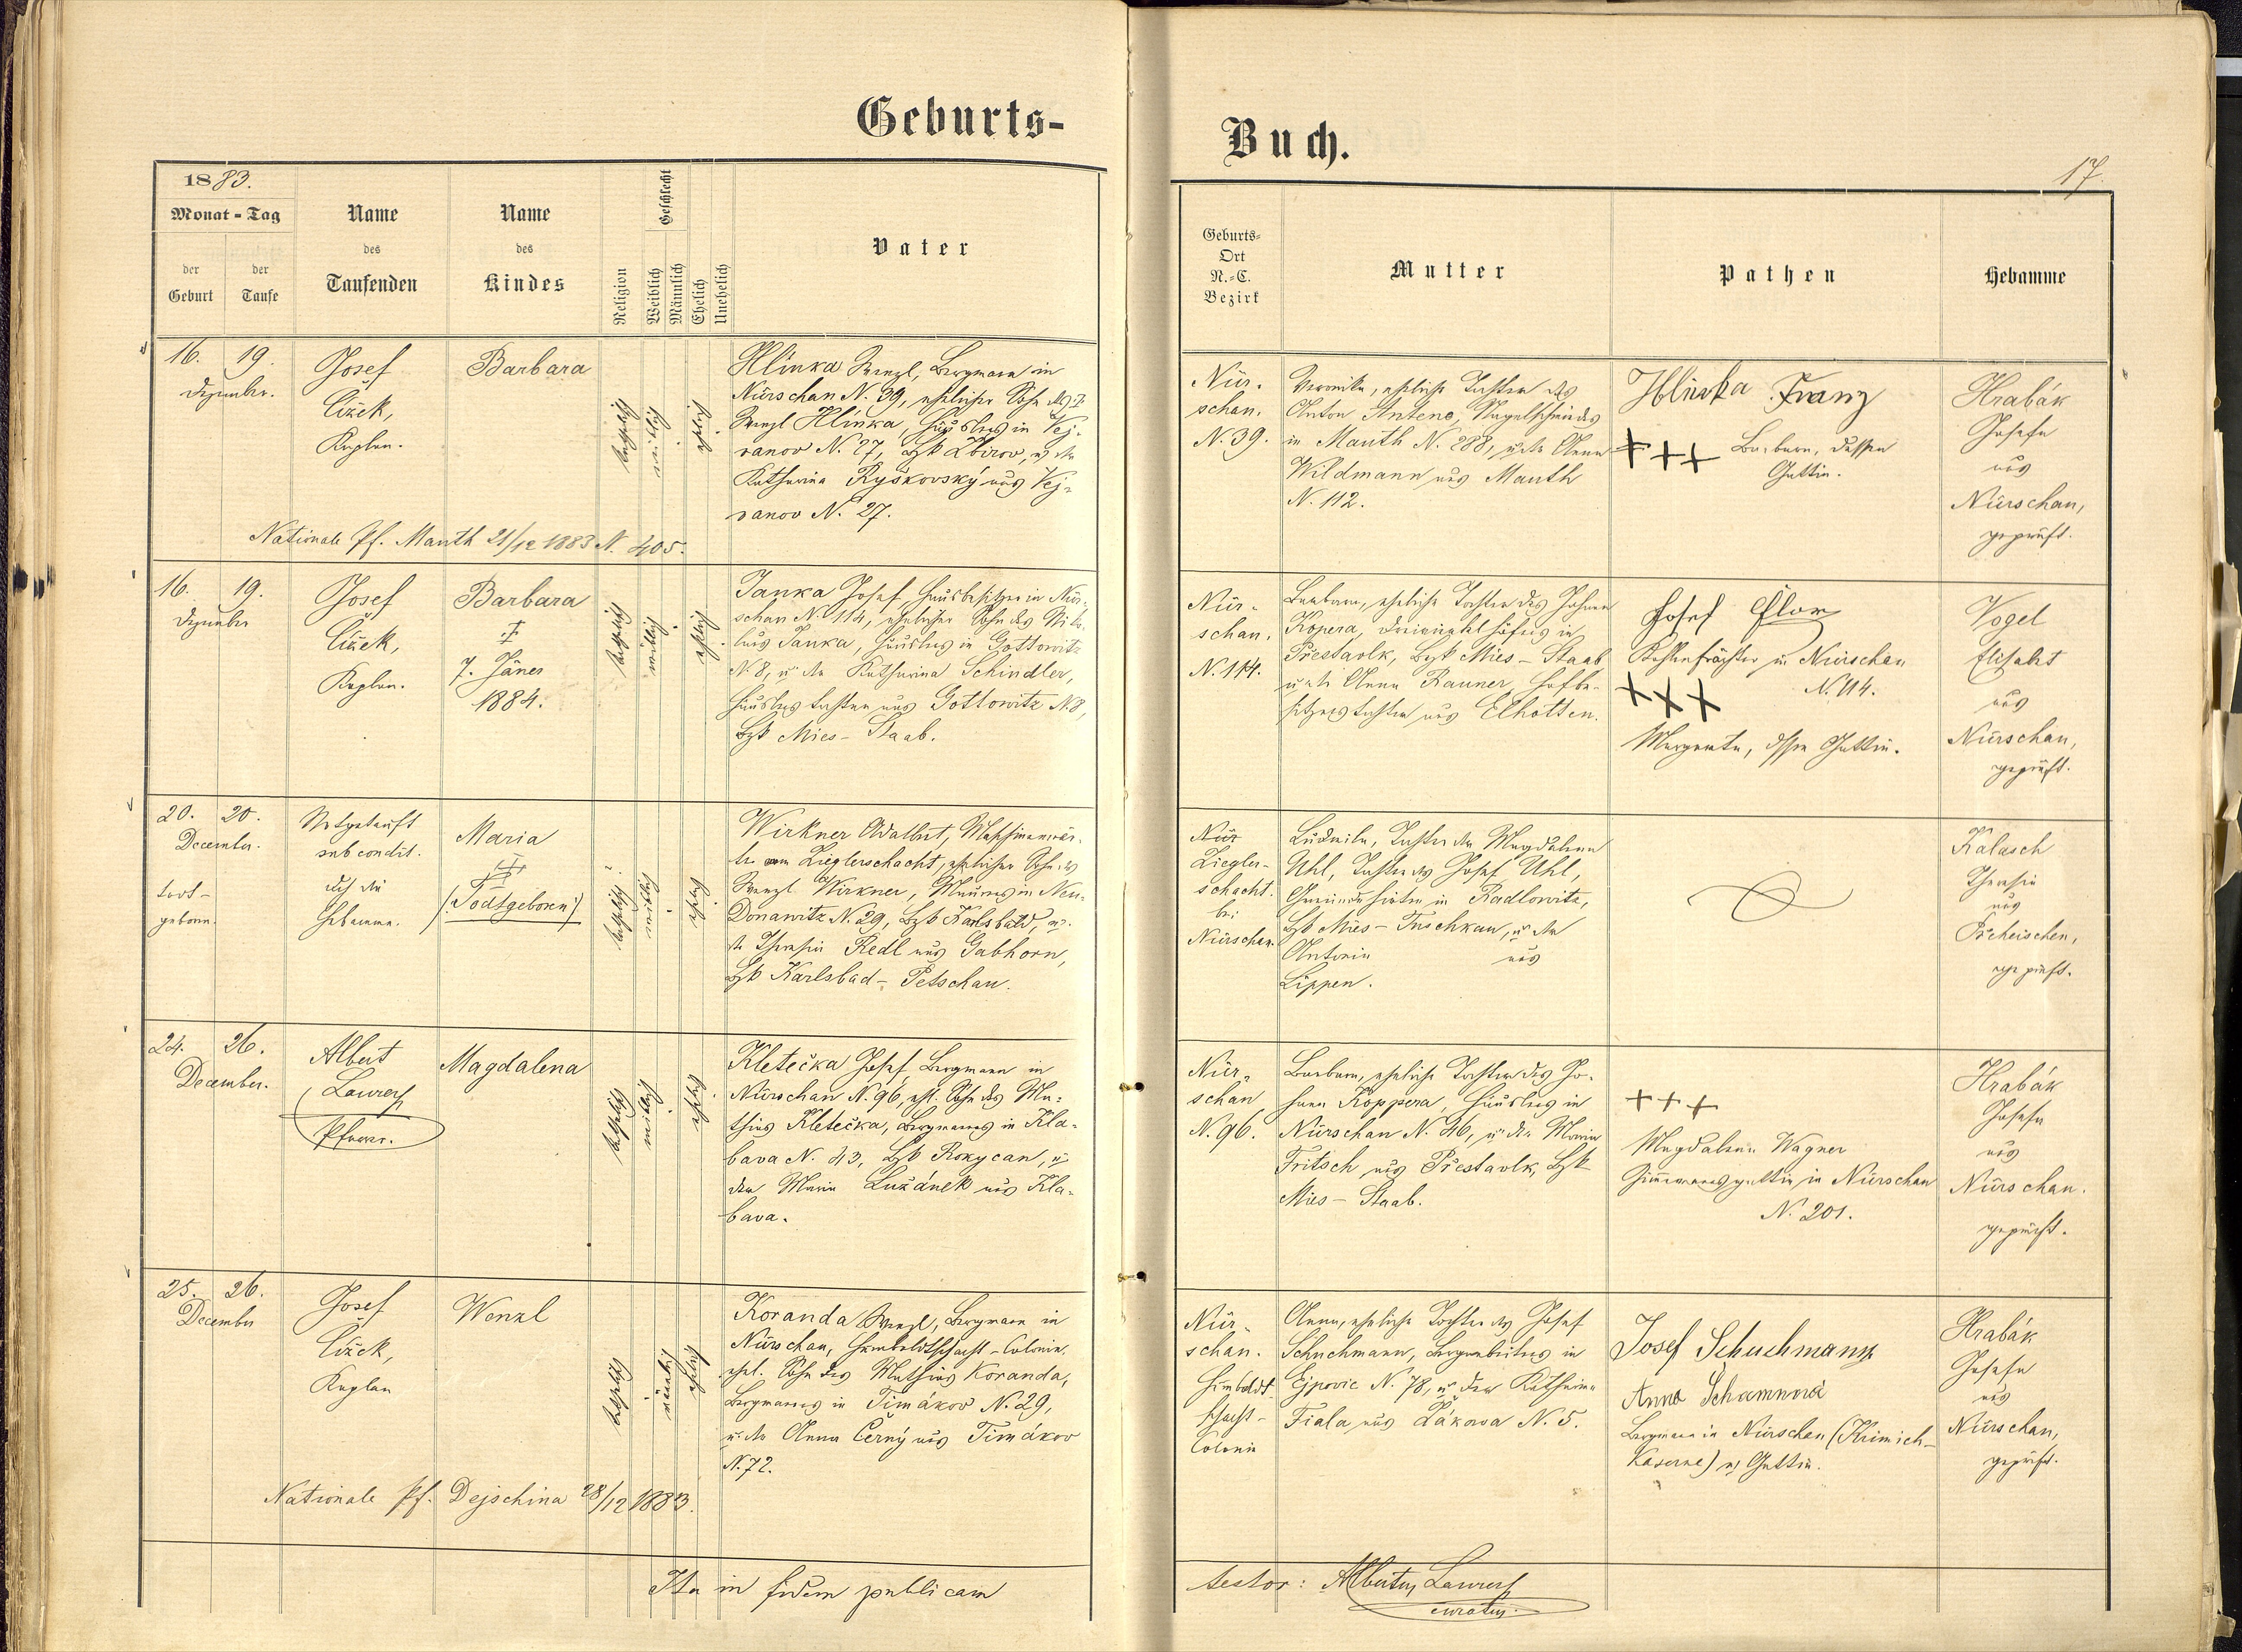 Geburts-
Buch.
17.
1883.
Monat-Tag
der Geburt
der Taufe
Name des Taufenden
Name des Kindes
Religion
Geschlecht
Weiblich
Männlich
Ehelich
Unehelich
Vater
Geburts-
Ort
N.-C.
Bezirk
Mutter
Pathen
Hebamme
16. 19.
Dezember.
Josef
Čížek,
Kaplan.
Barbara
katholisch
weiblich
ehelich
Hlinka Wenzl, Bergmann in
Nürschan N. 39, ehelicher Sohn des †
Wenzl Hlinka, Häuslers in Vej-
vanov N. 27, Bzk Zbirov, u. der
Katharina Ryškovský aus Vej-
vanov N. 27.
Nationale Pf. Mauth 21/12 1883 N. 405.
Nür-
schan.
N. 39.
Veronika, eheliche Tochter des
Anton Antene, Nagelschmieds
in Mauth N. 288, u. der Anna
Wildmann aus Mauth
N. 112.
Hlinka Franz
+++ Barbara, dessen
Gattin.
Hrabák
Josefa
aus
Nürschan,
geprüft.
16. 19.
Dezember
Josef
Čížek,
Kaplan.
Barbara
†
7. Jäner
1884.
katholisch
weiblich
ehelich
Janka Josef, Hausbesitzer in Nür-
schan N. 114, ehelicher Sohn des Niko-
laus Janka, Häuslers in Gottowitz
N. 8, u. der Katharina Schindler,
Häuslers tochter aus Gottowitz N. 8,
Bzk Mies-Staab.
Nür-
schan.
N. 114.
Barbara, eheliche Tochter des Johann
Kopera, in
Přestavlk, Bzk Mies-Staab
u. der Anna Rauner, Hofbe-
sitzers tochter aus Elhotten.
Josef Flor
in Nürschan
N. 114.
+++
Margareta, dessen Gattin.
Vogel
Elisabet
aus
Nürschan,
geprüft.
20. 20.
December.
todt-
geboren.
Notgetauft
sub condit.
durch die
Hebamme.
Maria
†
(Todtgeboren)
katholisch
weiblich
ehelich
Wirkner Adalbert, Maschinenwär-
ter am Zieglerschacht, ehelicher Sohn des
Wenzl Wirkner, Maurers in Neu-
Donawitz N. 29, Bzk Karlsbad, u.
der Theresia Redl aus Gabhorn,
Bzk Karlsbad-Petschau.
Nür
Ziegler-
schacht.
bei
Nürschan.
Ludmila, Tochter der Magdalena
Uhl, Tochter des Josef Uhl,
Gemeindehirten in Radlowitz,
Bzk Mies-Tuschkau, u. der
Antonia aus
Lippen.
Kalasch
Theresia
aus
Pscheischen,
geprüft.
24. 26.
December.
Albert
Laurer
Pfarrer.
Magdalena
katholisch
weiblich
ehelich
Kletečka Josef, Bergmann in
Nürschan N. 96, ehl. Sohn des Ma-
thias Kletečka, Bergmanns in Kla-
bava N. 43, Bzk Rokycan, u.
der Maria Lužánek aus Kla-
bava.
Nür-
schan
N. 96.
Barbara, eheliche Tochter des Jo-
hann Koppera, Häuslers in
Nürschan N. 46, u. der Maria
Fritsch aus Přestavlk, Bzk
Mies-Staab.
+++
Magdalena Wagner
in Nürschan
N. 201.
Hrabák
Josefa
aus
Nürschan.
geprüft.
25. 26.
December
Josef
Čížek,
Kaplan
Wenzl
katholisch
männlich
ehelich
Koranda Wenzl, Bergmann in
Nürschan, Humboldtschacht-Colonie,
ehel. Sohn des Mathias Koranda,
Bergmanns in Timákov N. 29,
u. der Anna Černý aus Timákov
N. 72.
Nationale Pf. Dejschina 28/12 1883.
Nür-
schan.
Humboldt
schacht-
Colonie
Anna, eheliche Tochter des Josef
Schuchmann, Bergarbeiters in
Ejpovic N. 78, u. der Katharina
Fiala aus Žákova N. 5.
Josef Schuchmann
Anna
Bergmann in Nürschan (Krimich-
Kaserne) u. Gattin.
Hrabák
Josefa
aus
Nürschan,
geprüft.
Ita in fidem publicam
testor: Albertus Laurer
curatus.